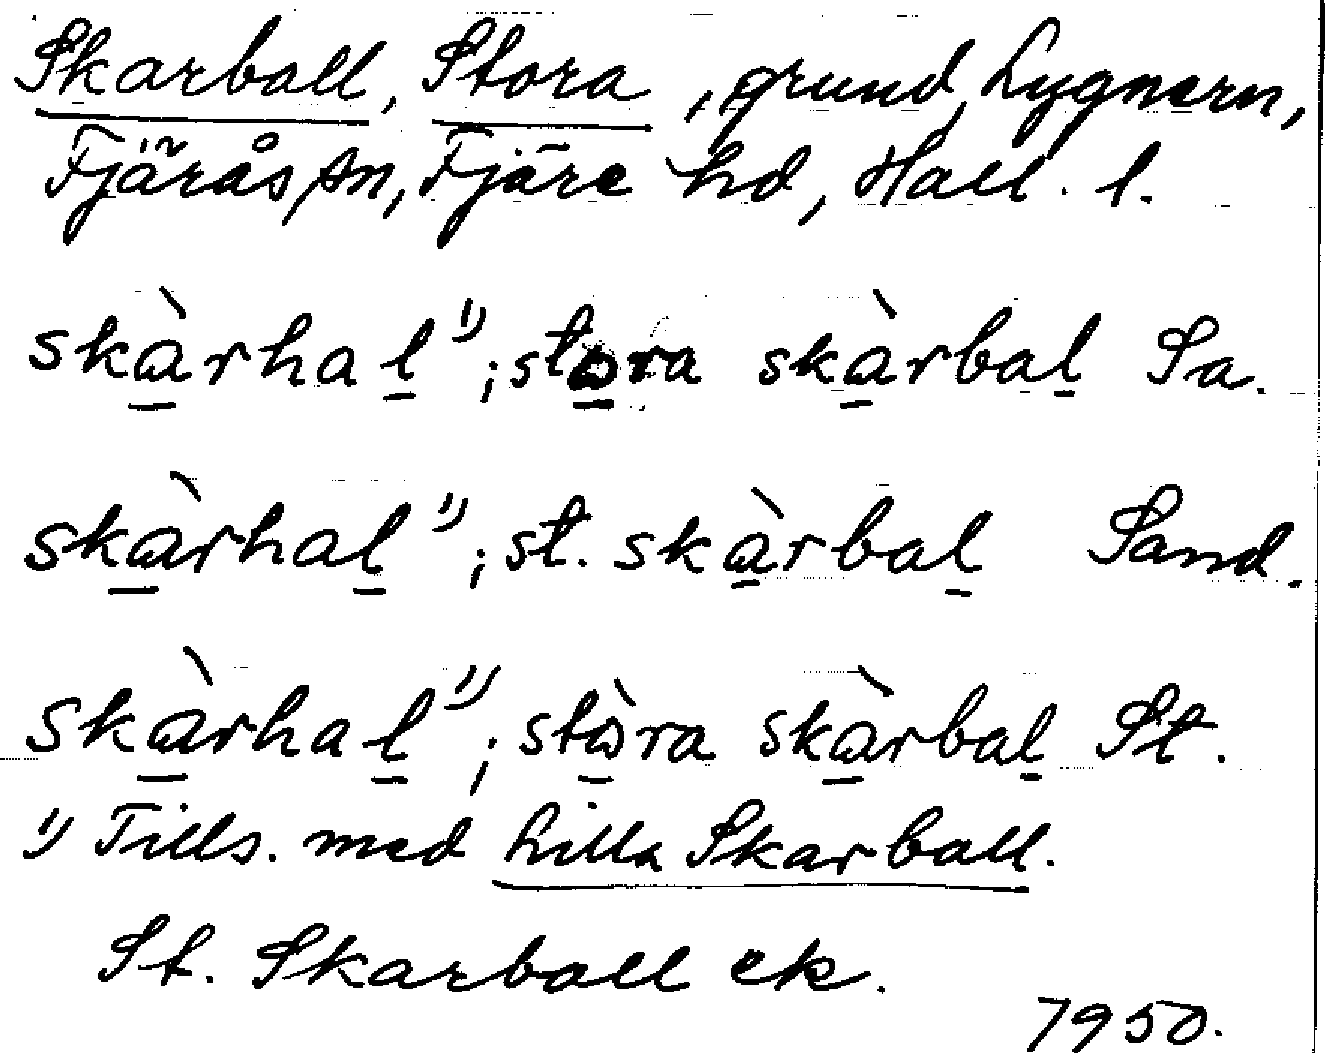 Skarball, Stora, grund, Lygnern,
Fjärås sn, Fjäre hd, Hall. l.
skàrhal ¹); stora skàrbal Sa.
skàrhal ¹); st. skàrbal Sand.
skàrhal ¹); stòra skàrbal St.
¹) Tills. med Lilla Skarball.
St. Skarball ek.
1950.